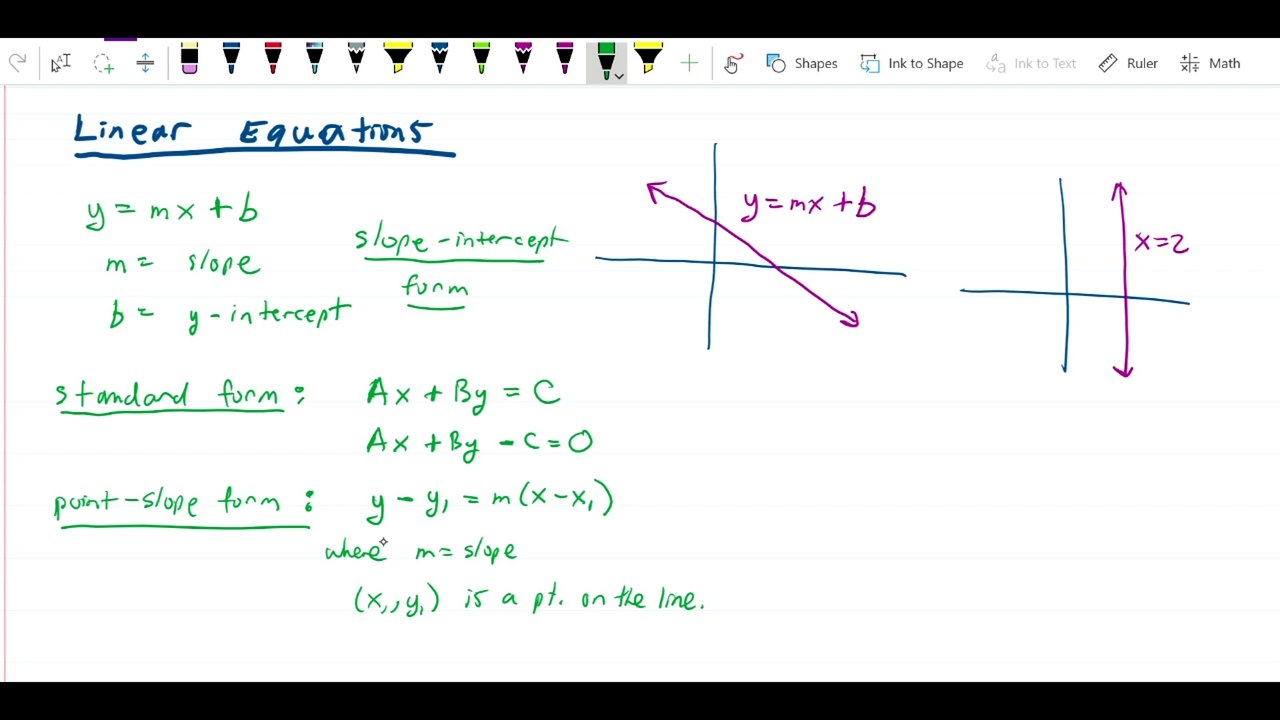 Shapes
Ink to Shape
Ink to Text
Ruler
Math
Linear Equations
y = mx + b
m = slope
b = y-intercept
slope-intercept
form
y = mx + b
x = 2
standard form: Ax + By = C
Ax + By - C = 0
point-slope form: y - y₁ = m(x - x₁)
where m = slope
(x₁, y₁) is a pt. on the line.